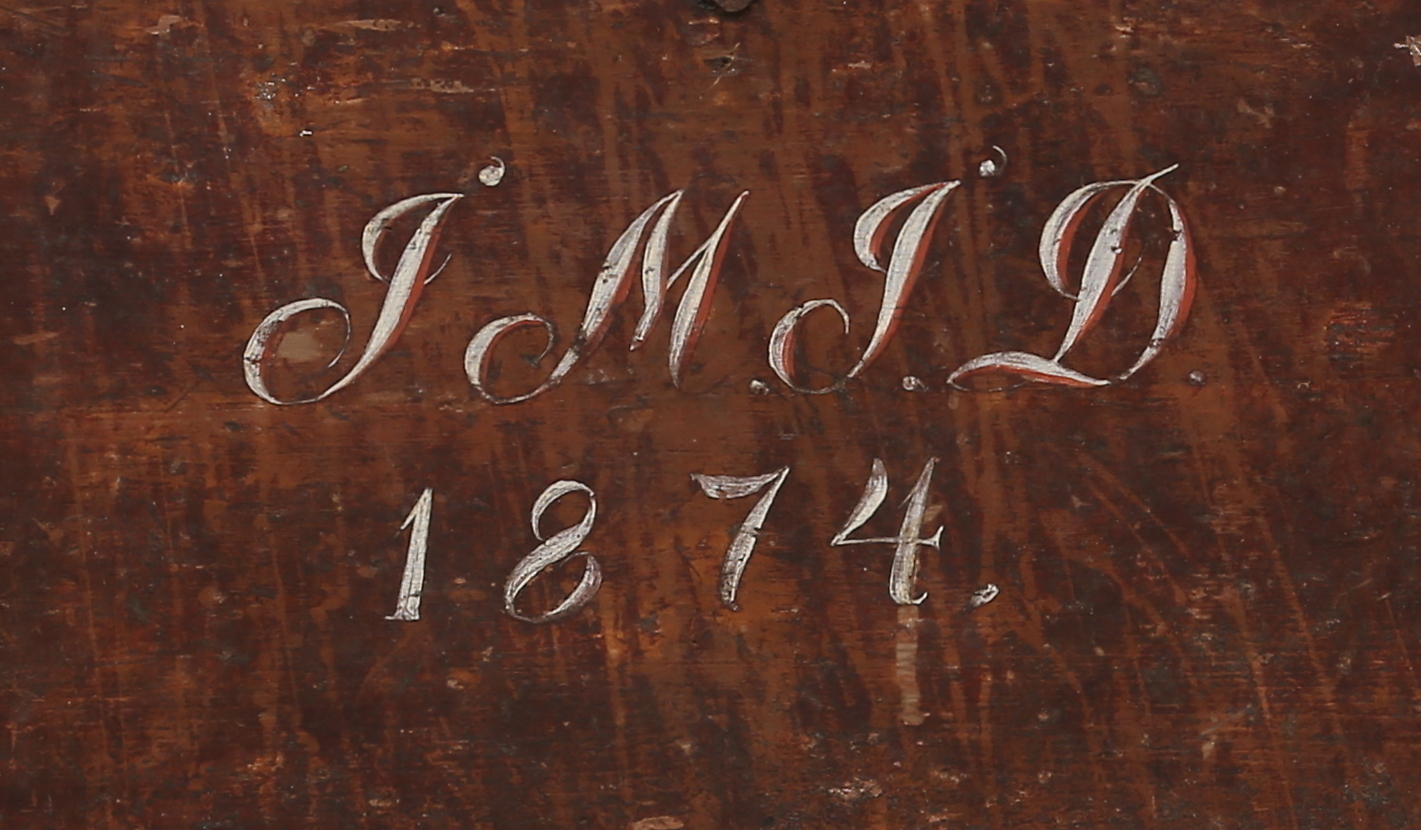 J M. J. D.
1874.